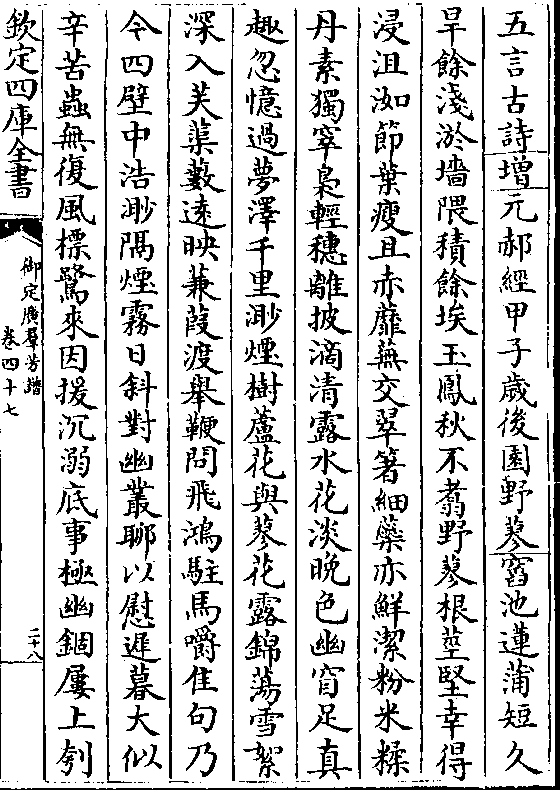 五言古詩增元郝經甲子歲後園野蓼窞池蓮蒲短久
旱餘淺淤墻隈積餘埃玉鳳秋不翥野蓼根莖堅幸得
浸沮洳節葉瘦且赤蘼蕪交翠箸細蘂亦鮮潔粉米糅
丹素獨穽裊輕穗離披滴清露水花淡晚色幽窗足真
趣忽憶過夢澤千里渺煙樹蘆花與蓼花露錦蕩雪絮
深入芙蕖藪遠映蒹葭渡舉鞭問飛鴻駐馬嚼佳句乃
今四壁中浩渺隔煙霧日斜對幽叢聊以慰遲暮大似
辛苦蟲無復風標鷺來因援沉溺底事極幽錮屢上刳
欽定四庫全書
御定廣羣芳譜
卷四十七
二十八